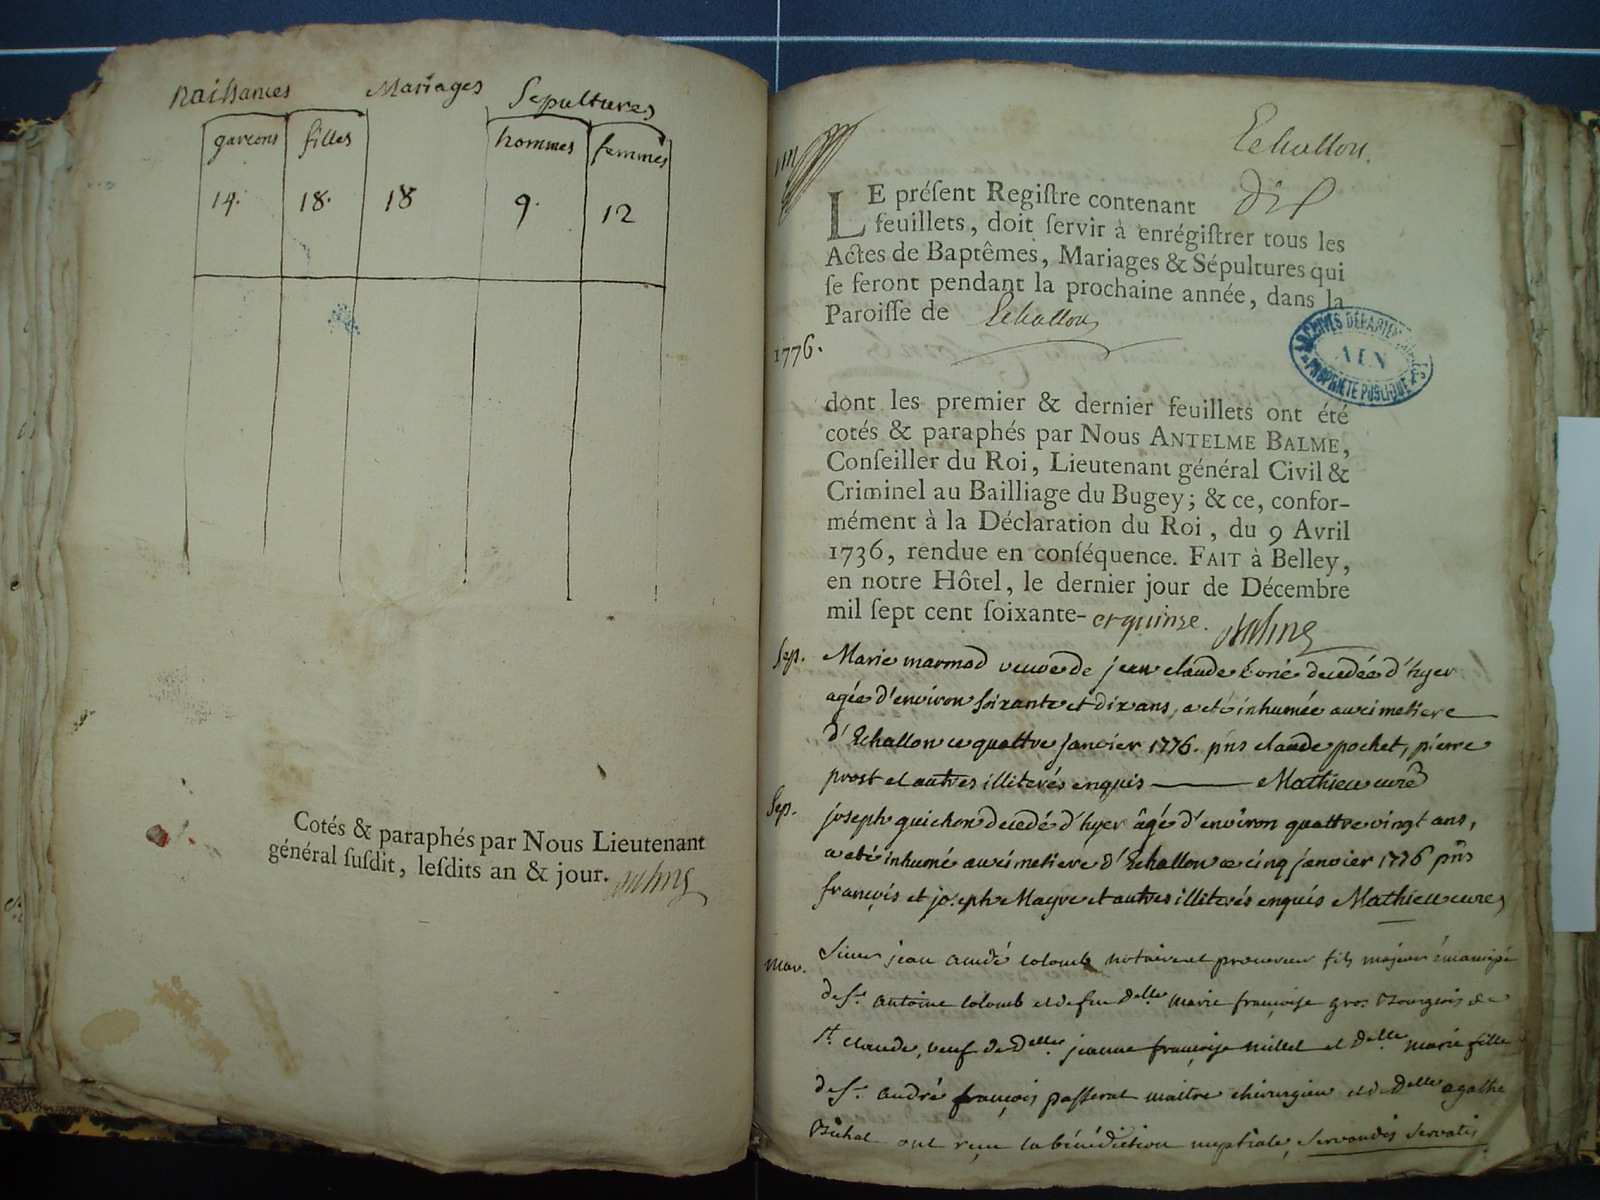 Naissances Mariages Sépultures
garcons filles hommes femmes
14. 18. 18 9. 12
Cotés & paraphés par Nous Lieutenant
général ſuſdit, leſdits an & jour.
Echallon.
LE préſent Regiſtre contenant dix
feuillets, doit ſervir à enrégiſtrer tous les
Actes de Baptêmes, Mariages & Sépultures qui
ſe feront pendant la prochaine année, dans la
Paroiſſe de Echallon
ARCHIVES DÉPARTEMENTALES
AIN
PROPRIÉTÉ PUBLIQUE
1776.
dont les premier & dernier feuillets ont été
cotés & paraphés par Nous ANTELME BALME,
Conſeiller du Roi, Lieutenant général Civil &
Criminel au Bailliage du Bugey; & ce, confor-
mément à la Déclaration du Roi, du 9 Avril
1736, rendue en conſéquence. FAIT à Belley,
en notre Hôtel, le dernier jour de Décembre
mil ſept cent ſoixante-et quinze. Balme
Sep. Marie marmod veuve de jean claude decedée d'hyer
agée d'environ soixante et dix ans, a eté inhumée au cimetiere
d'Echallon ce quattre janvier 1776. pns claude pochet, pierre
prost et autres illiterés enquis Mathieu curé
Sep. joseph guichon decedé d'hyer âgé d'environ quattre vingt ans,
a eté inhumé au cimetiere d'Echallon ce cinq janvier 1776 pns
françois et joseph Mayre et autres illiterés enquis Mathieu curé
mar. Sieur jean andré colomb notaire et procureur fils majeur émancipé
de Sr. antoine colomb et de fue Delle marie françoise gros Bourgeois de
St. claude, veuf de Delle jeanne françoise millet et Delle marie fille
de Sr. andré françois passerat maitre chirurgien et de Delle agathe
Bichat ont reçu la bénédiction nuptiale, servandis servatis